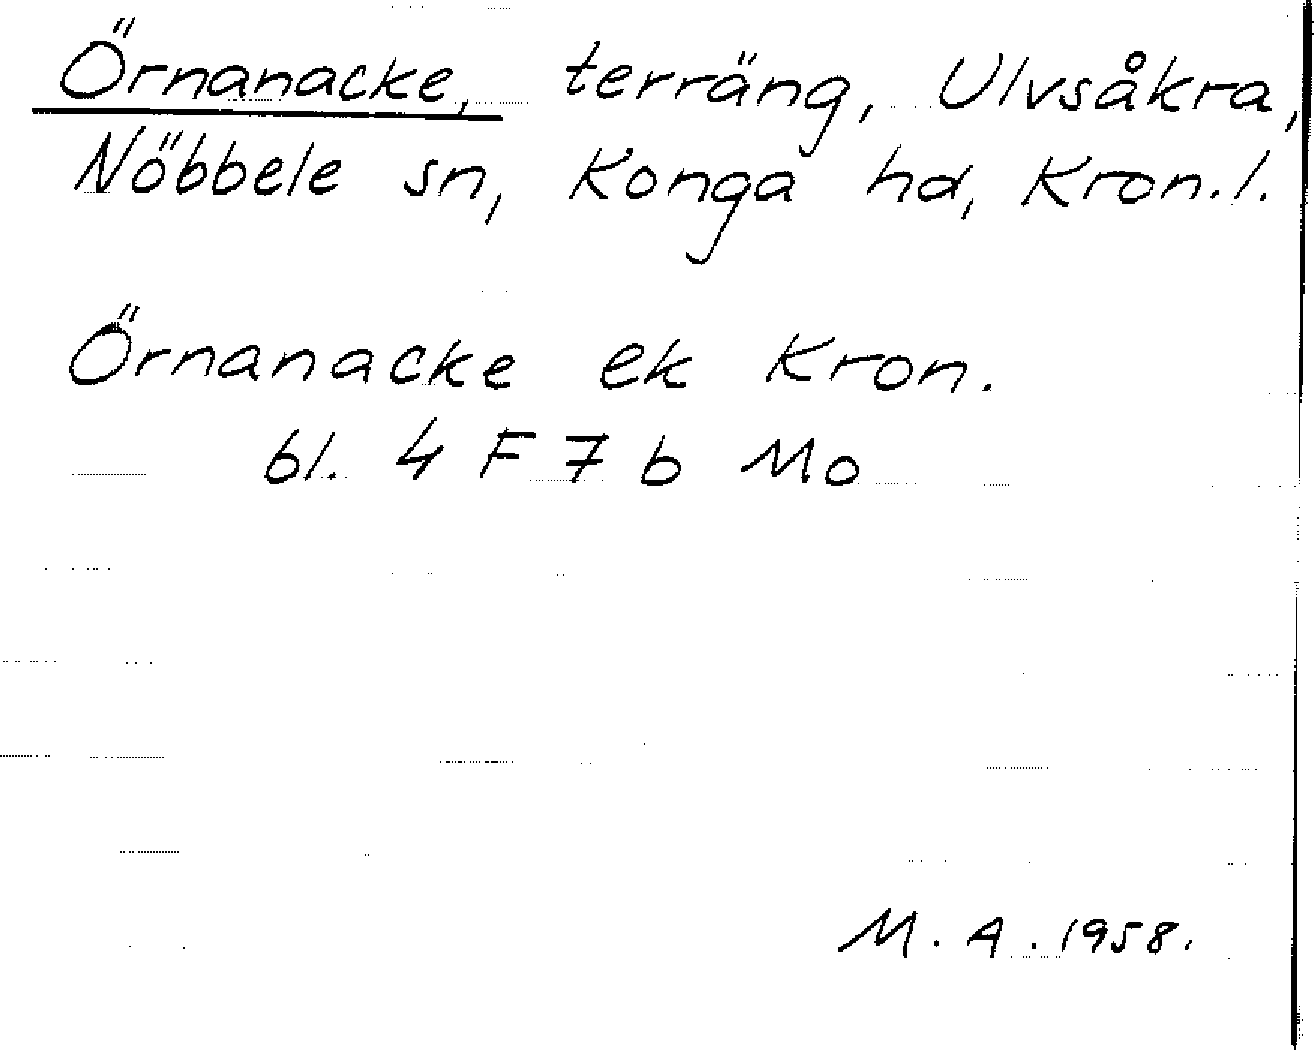 Örnanacke, terräng, Ulvsåkra,
Nöbbele sn, Konga hd, Kron.l.
Örnanacke ek Kron.
bl. 4 F 7 b Mo
M. A. 1958.